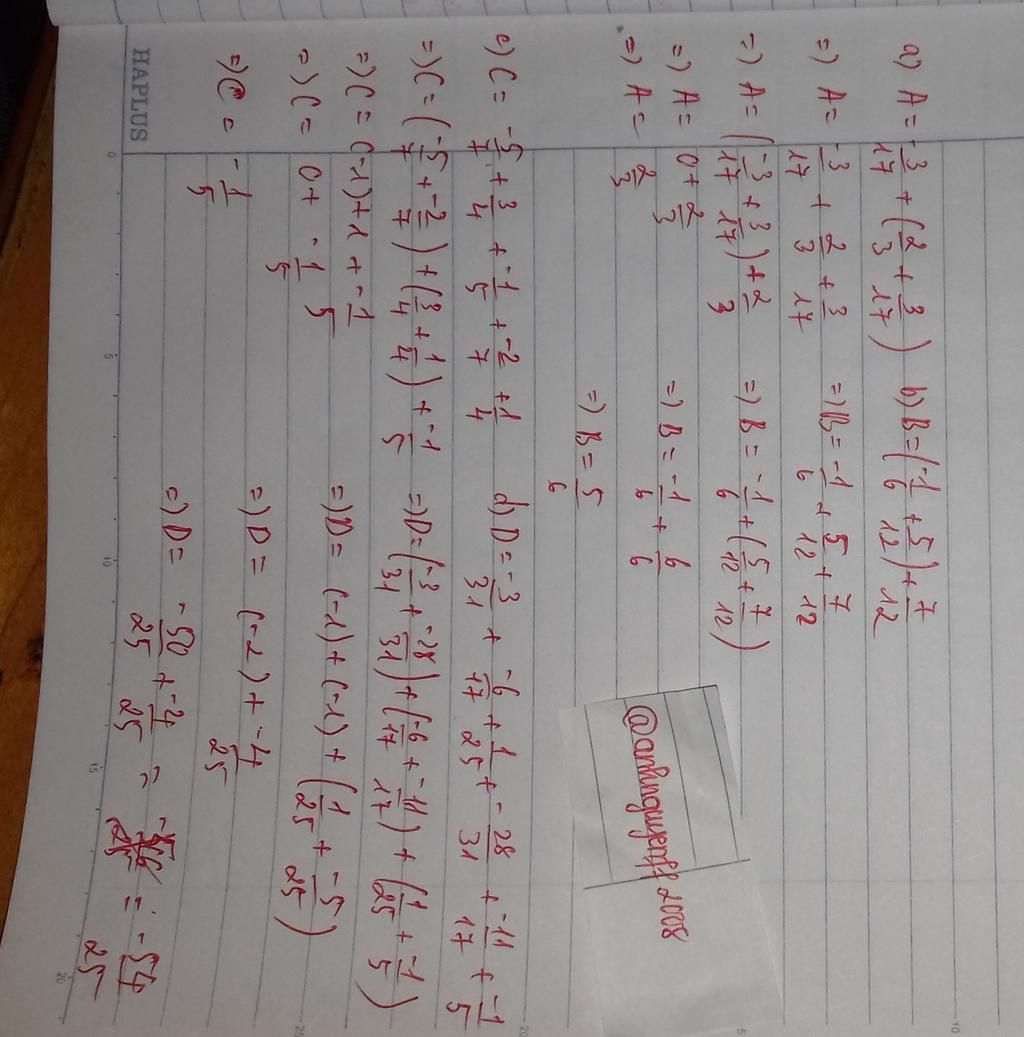 a) A = -3/17 + (2/3 + 3/17)
=) A = -3/17 + 2/3 + 3/17
=) A = (-3/17 + 3/17) + 2/3
=) A = 0 + 2/3
=) A = 2/3
b) B = (-1/6 + 5/12) + 7/12
=) B = -1/6 + 5/12 + 7/12
=) B = -1/6 + (5/12 + 7/12)
=) B = -1/6 + 6/6
=) B = 5/6
@anhnguyenff2008
c) C = -5/7 + 3/4 + -1/5 + -2/7 + 1/4
=) C = (-5/7 + -2/7) + (3/4 + 1/4) + -1/5
=) C = (-1) + 1 + -1/5
=) C = 0 + -1/5
=) C = -1/5
d) D = -3/31 + -6/17 + 1/25 + -28/31 + -11/17 + -1/5
=) D = (-3/31 + -28/31) + (-6/17 + -11/17) + (1/25 + -1/5)
=) D = (-1) + (-1) + (1/25 + -5/25)
=) D = (-2) + -4/25
=) D = -50/25 + -4/25 = = -54/25
HAPLUS
0 5 10 15 20
20 5 10